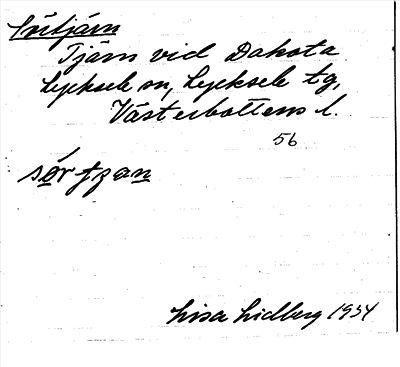 Sörtjärn
Tjärn vid Dakota
Lycksele sn, Lycksele tg,
Västerbottens l.
56
sørtjan
Lisa Lidberg 1934